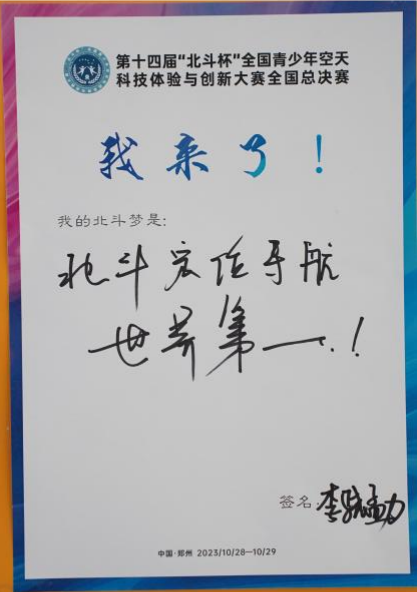 第十四届“北斗杯”全国青少年空天
科技体验与创新大赛全国总决赛
我来了！
我的北斗梦是:
北斗定位导航
世界第一.！
签名:李
中国·郑州 2023/10/28—10/29